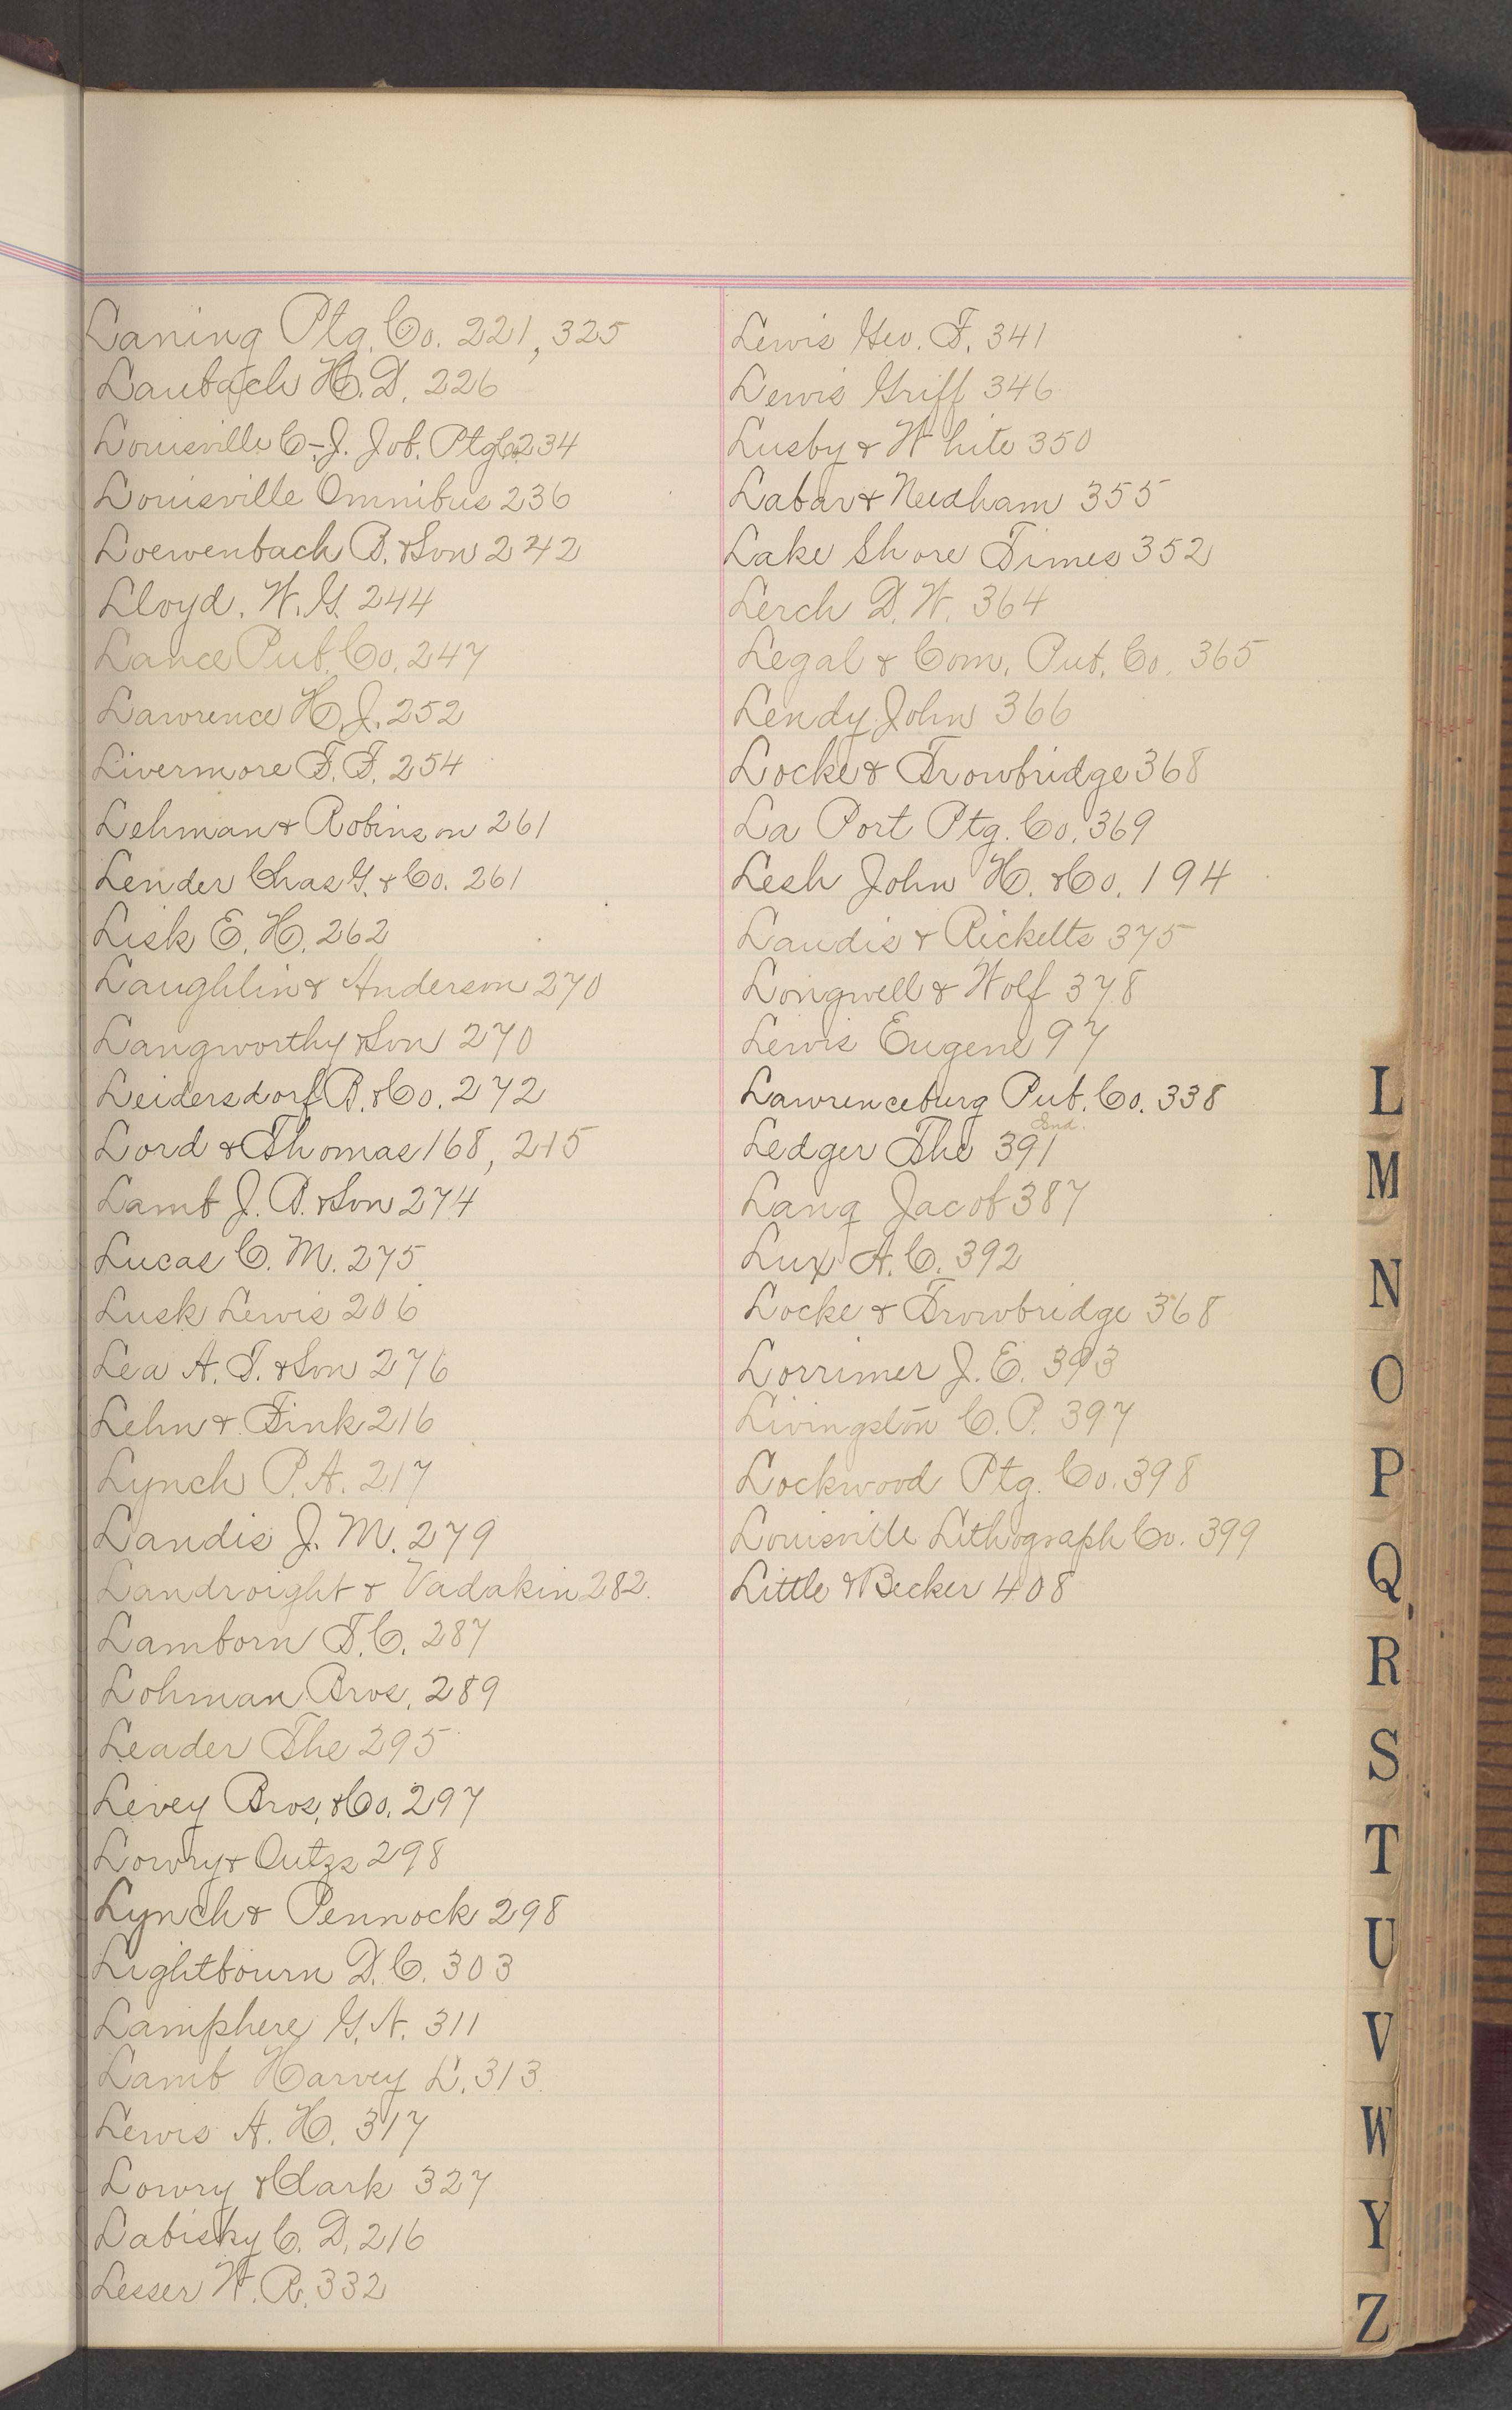 Laning Ptg. Co. 221, 325
Laubach H. D. 226
Louisville C-J. Job. Ptg Co 234
Louisville Omnibus 236
Loewenbach B. & Son 242
Lloyd. W. G. 244
Lance Pub. Co. 247
Lawrence H. J. 252
Livermore F. F. 254
Lehman & Robinson 261
Lender Chas G. & Co. 261
Lisk E. H. 262
Laughlin & Anderson 270
Langworthy & Son 270
Leidersdorf B. & Co. 272
Lord & Thomas 168, 215
Lamb J. P. & Son 274
Lucas C. M. 275
Lusk Lewis 206
Lea A. T. & Son 276
Lehn & Fink 216
Lynch P. A. 217
Landis J. M. 279
Landroight & Vadakin 282.
Lamborn T. C. 287
Lohman Bros. 289
Leader The 295
Levey Bros. & Co. 297
Lowry & Outzs 298
Lynch & Pennock 298
Lightbourn D. C. 303
Lamphere G. N. 311
Lamb Harvey L. 313
Lewis A. H. 317
Lowry & Clark 327
Labisky C. D. 216
Lesser W. R. 332
Lewis Geo. F. 341
Lewis Griff 346
Lusby & White 350
Labar & Needham 355
Lake Shore Times 352
Lerch D. W. 364
Legal & Com. Pub. Co. 365
Lendy John 366
Locke & Trowbridge 368
La Port Ptg. Co. 369
Lesh John H. & Co. 194
Landis & Ricketts 375
Longwell & Wolf 378
Lewis Eugene 97
Lawrenceburg Pub. Co. 338
Ind.
Ledger The 391
Lang Jacob 387
Lux A. C. 392
Locke & Trowbridge 368
Lorrimer J. E. 393
Livingston C. P. 397
Lockwood Ptg. Co. 398
Louisville Lithograph Co. 399
Little & Becker 408
L
M
N
O
P
Q
R
S
T
U
V
W
Y
Z